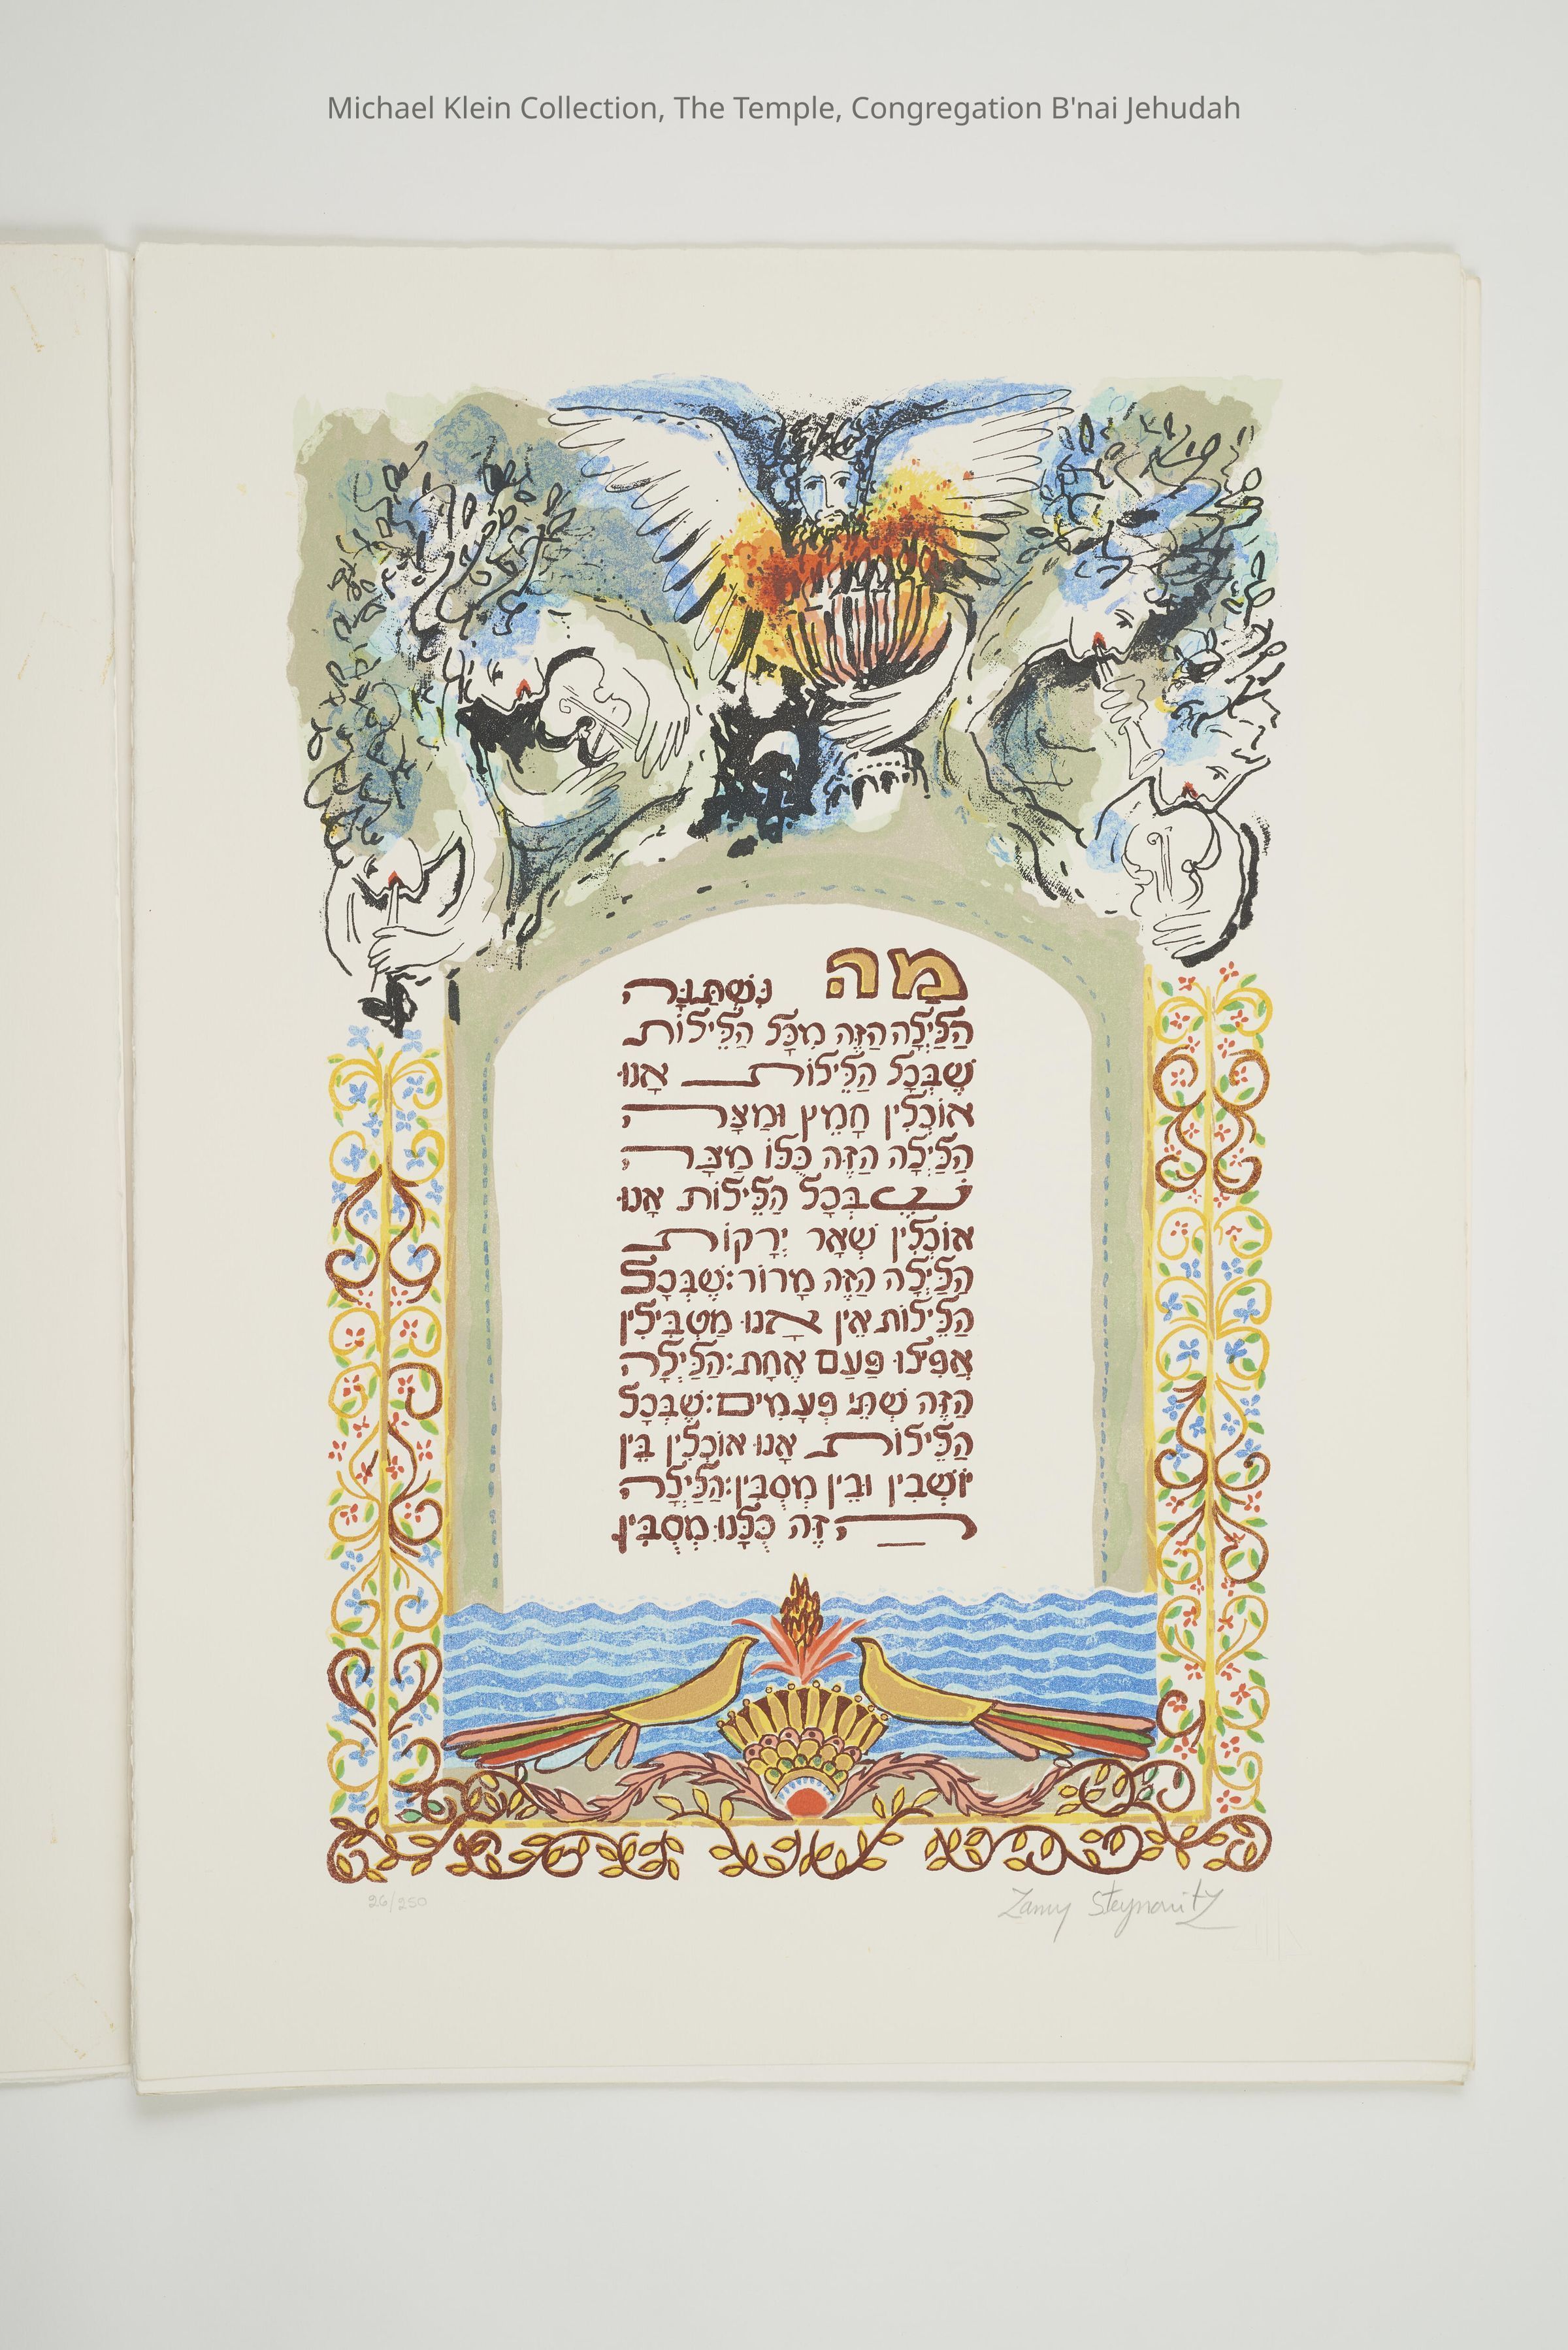 Michael Klein Collection, The Temple, Congregation B'nai Jehudah
מה נִּשְׁתַּנָּה
הַלַּיְלָה הַזֶּה מִכָּל הַלֵּילוֹת
שֶׁבְּכָל הַלֵּילוֹת אָנוּ
אוֹכְלִין חָמֵץ וּמַצָּה
הַלַּיְלָה הַזֶּה כֻּלּוֹ מַצָּה
שֶׁבְּכָל הַלֵּילוֹת אָנוּ
אוֹכְלִין שְׁאָר יְרָקוֹת
הַלַּיְלָה הַזֶּה מָרוֹר: שֶׁבְּכָל
הַלֵּילוֹת אֵין אָנוּ מַטְבִּילִין
אֲפִילוּ פַּעַם אֶחָת: הַלַּיְלָה
הַזֶּה שְׁתֵּי פְּעָמִים: שֶׁבְּכָל
הַלֵּילוֹת אָנוּ אוֹכְלִין בֵּין
יוֹשְׁבִין וּבֵין מְסֻבִּין: הַלַּיְלָה
הזֶּה כֻּלָּנוּ מְסֻבִּין
26/250
Zamy Steynovitz